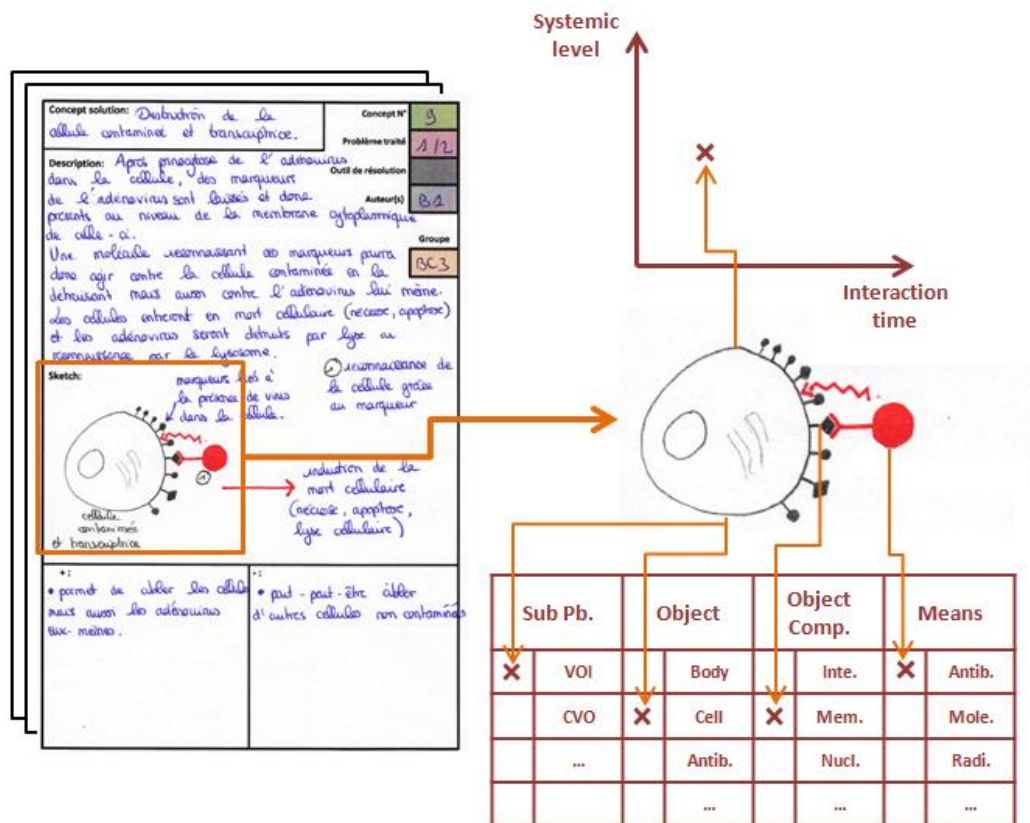 Concept solution: Destruction de la
cellule contaminée et transcriptrice.
Concept N° 9
Problème traité 1/2
Outil de résolution
Auteur(s) B1
Groupe
BC3
Description: Après pinocytose de l'adénovirus
dans la cellule, des marqueurs
de l'adénovirus sont laissés et donc
présents au niveau de la membrane cytoplasmique
de celle-ci.
Une molécule reconnaissant ces marqueurs pourra
donc agir contre la cellule contaminée en la
détruisant mais aussi contre l'adénovirus lui même.
Les cellules entreront en mort cellulaire (nécrose, apoptose)
et les adénovirus seront détruits par lyse ou
reconnaissance par le lysosome.
Sketch:
marqueurs liés à
la présence de virus
dans la cellule.
1 reconnaissance de
la cellule grâce
au marqueur
1
induction de la
mort cellulaire
(nécrose, apoptose,
lyse cellulaire)
cellule
contaminée
et transcriptrice
+:
• permet de cibler les cellules
mais aussi les adénovirus
eux-mêmes.
-:
• peut-peut-être cibler
d'autres cellules non contaminées
Systemic
level
Interaction
time
Sub Pb. Object Object Comp. Means
VOI Body Inte. Antib.
CVO Cell Mem. Mole.
... Antib. Nucl. Radi.
... ... ...